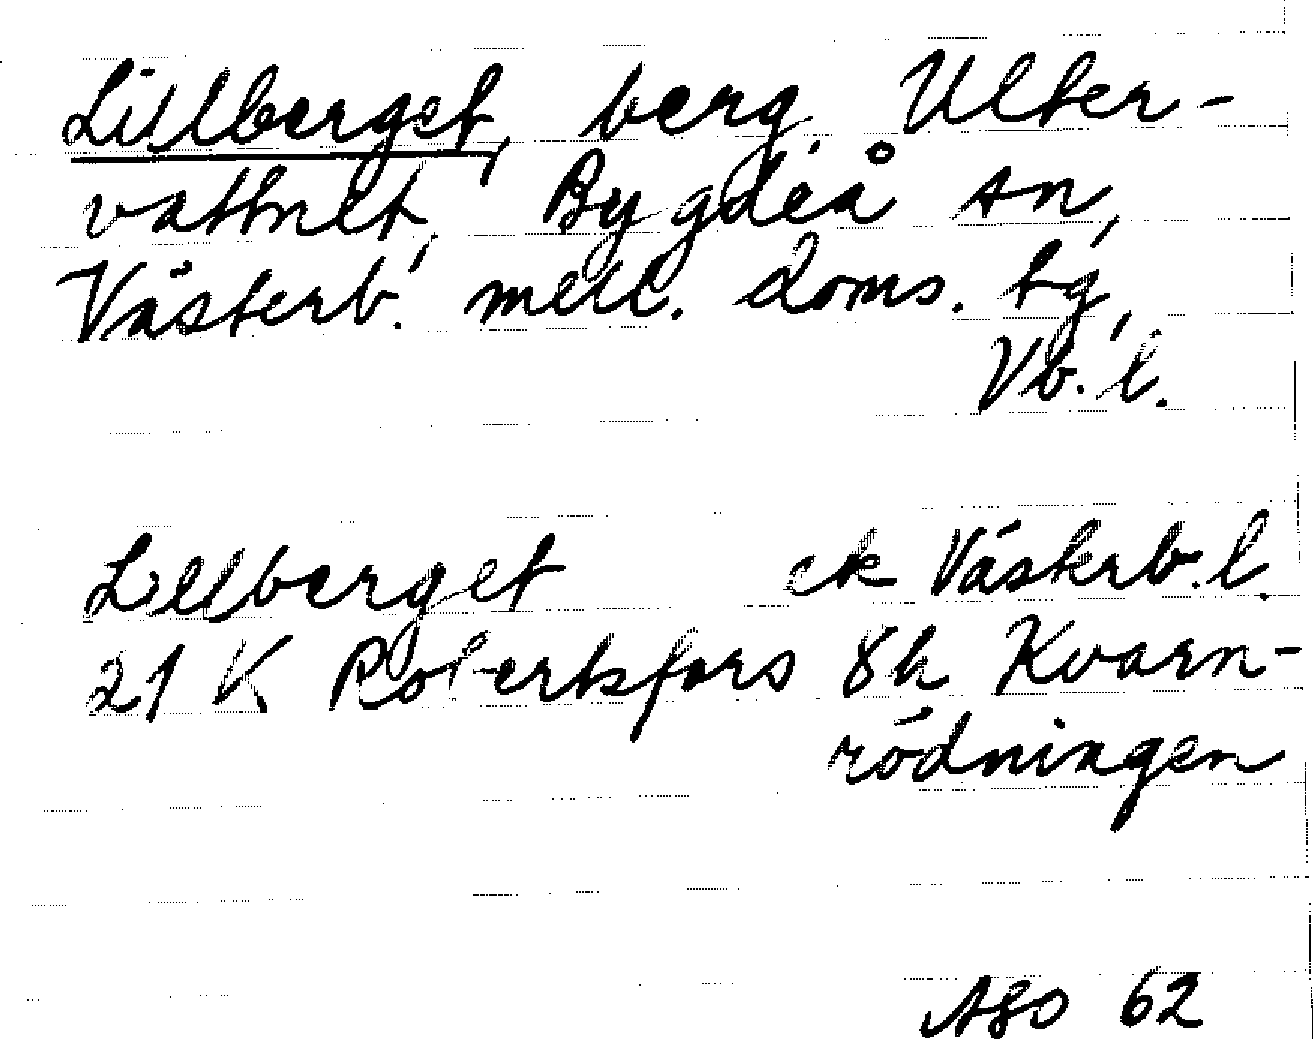 Lillberget, berg, Ulter-
vattnet, Bygdeå sn,
Västerb. mell. doms. tg,
Vb. l.
Lillberget ek Västerb. l.
21 K Robertsfors 8h Kvarn-
rödningen
ASO 62